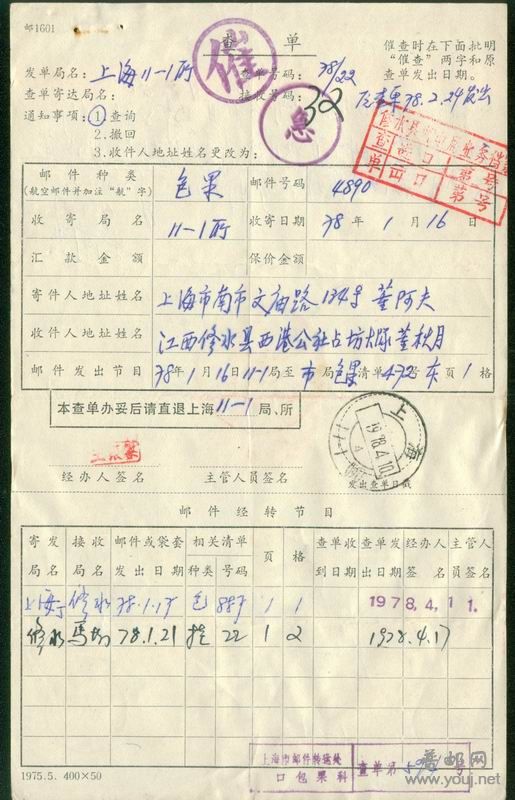 邮1601
查单
催
急
催查时在下面批明
“催查”两字和原
查单发出日期。
发单局名：上海11-1所 查单号码：78/22
查单寄达局名： 接收号码：32 原查单78.2.24发出
通知事项：①查询
2.撤回
3.收件人地址姓名更改为：
修水县邮电局
查进口 第 号
单出口 第 号
邮件种类 包果 邮件号码 4890
(航空邮件并加注“航”字)
收寄局名 11-1所 收寄日期 78年1月16日
汇款金额 保价金额
寄件人地址姓名 上海市南市文庙路134号 董阿夫
收件人地址姓名 江西修水县西港公社占坊大队董秋月
邮件发出节目 78年1月16日11-1局至市局包果清单472号 页1格
本查单办妥后请直退上海11-1局、所
上海
1978.4.10
经办人签名 主管人员签名 发出查单日戳
邮件经转节目
寄发局名 接收局名 邮件或袋套发出日期 相关清单种类 号码 页 格 查单收到日期 查单发出日期 经办人签名 主管人员签名
上海 修水 78.1.17 包 887 1 1 1978.4.11.
修水 馬坳 78.1.21 挂 22 1 2 1978.4.17
上海市邮件转运处
口包果科 查单第 号
1975.5. 400×50
普邮网
www.youj.net